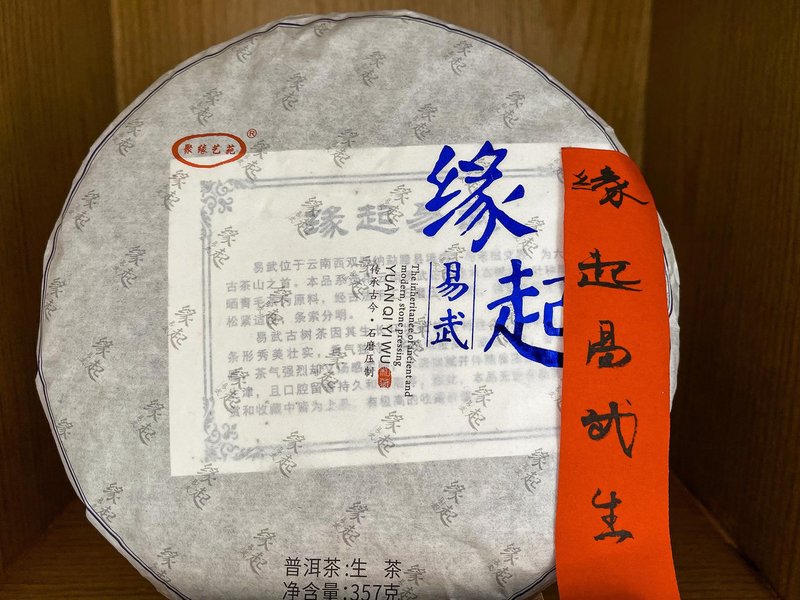 聚缘艺苑®
缘起
易武
The inheritance of ancient and
modern, stone pressing
YUAN QI YI WU
传承古今·石磨压制
缘起易武生
缘起易
易武位于云南西双
古茶山之首。本品系
晒青毛 原料，经
松紧适 条索分明。
易武古树茶因其生
条形秀美壮实，香气
茶气强烈却 汤感
津，且口腔留 持久和
和收藏中 为上品，有极高的收藏价
普洱茶:生 茶
净含量:357克